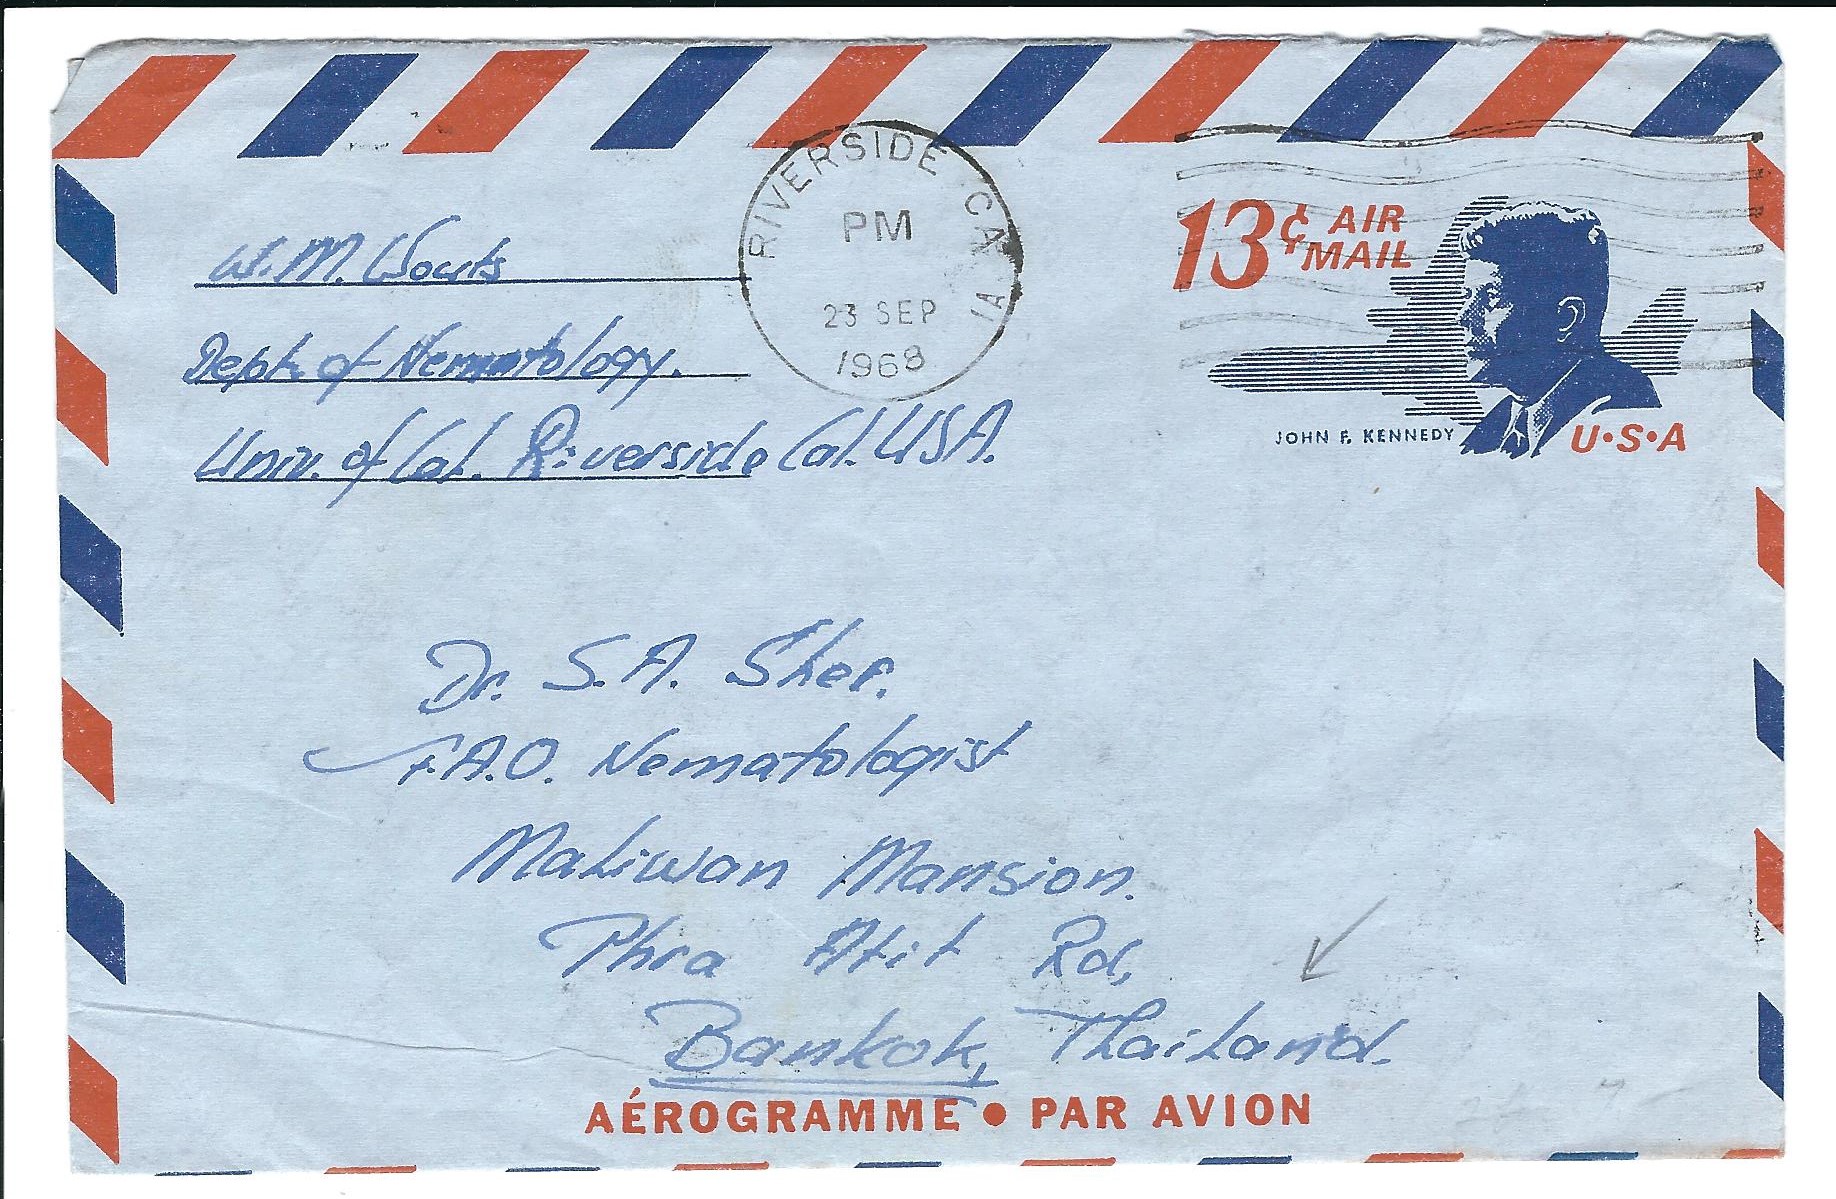 W.M. Wouts
Dept. of Nematology.
Univ. of Cal. Riverside Cal. USA.
RIVERSIDE CA
PM
23 SEP
1968
13¢ AIR
MAIL
JOHN F. KENNEDY
U•S•A
Dr. S.A. Sher.
F.A.O. Nematologist
Maliwan Mansion.
Phra Atit Rd,
Bankok, Thailand.
AÉROGRAMME • PAR AVION